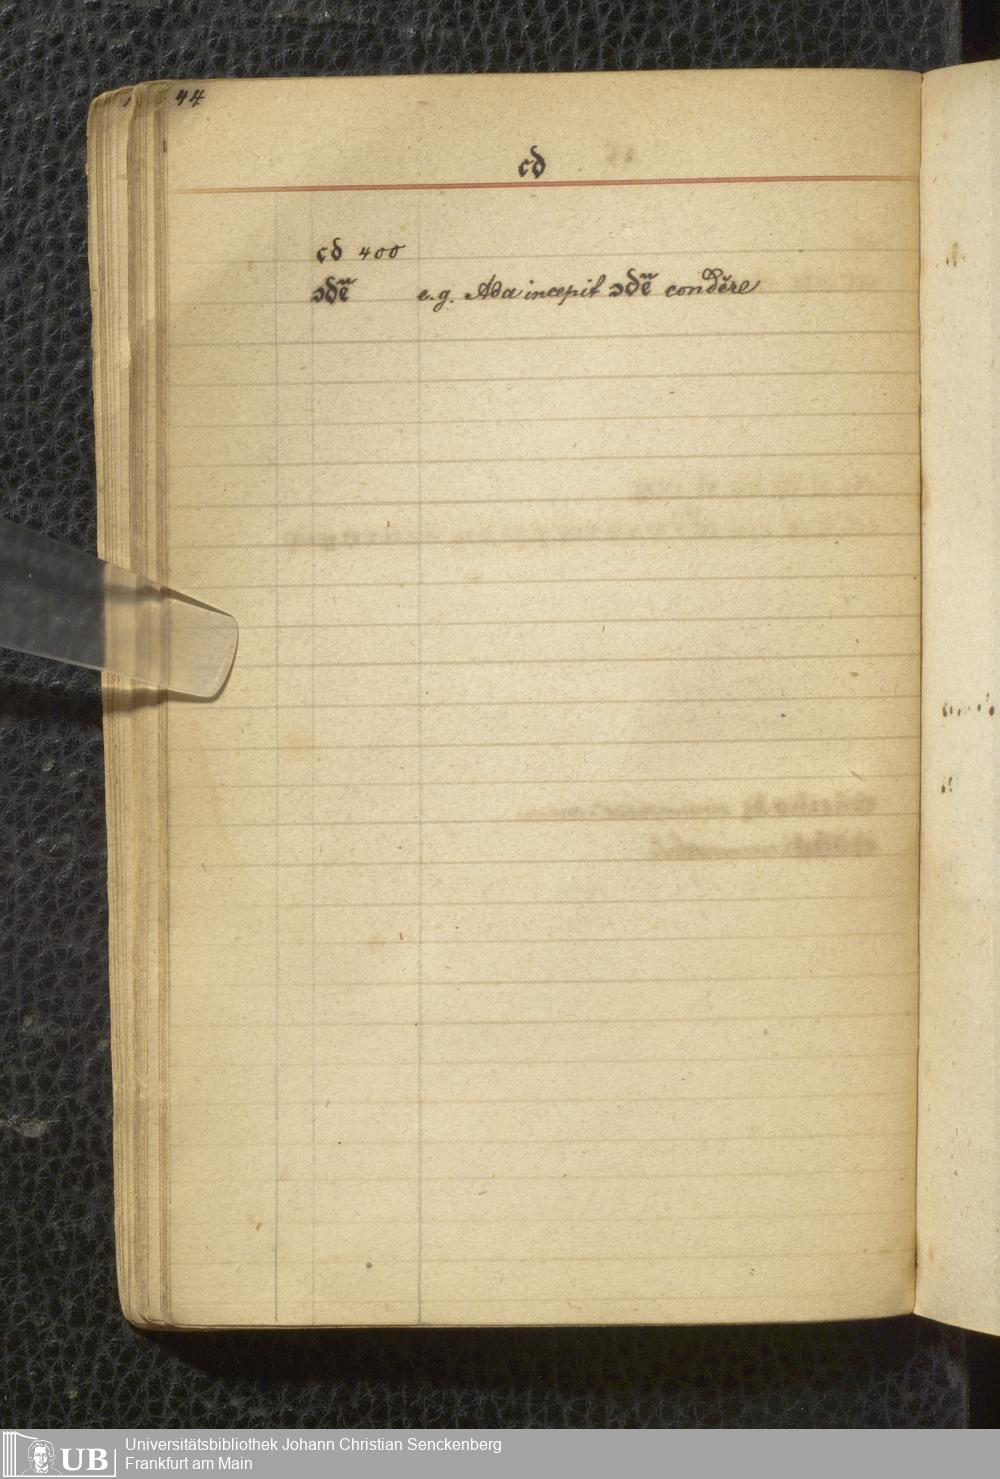 44
cd
cd 400
ɔdẽ e.g. Ada incepit ɔdẽ condĕre
Universitätsbibliothek Johann Christian Senckenberg
Frankfurt am Main
UB